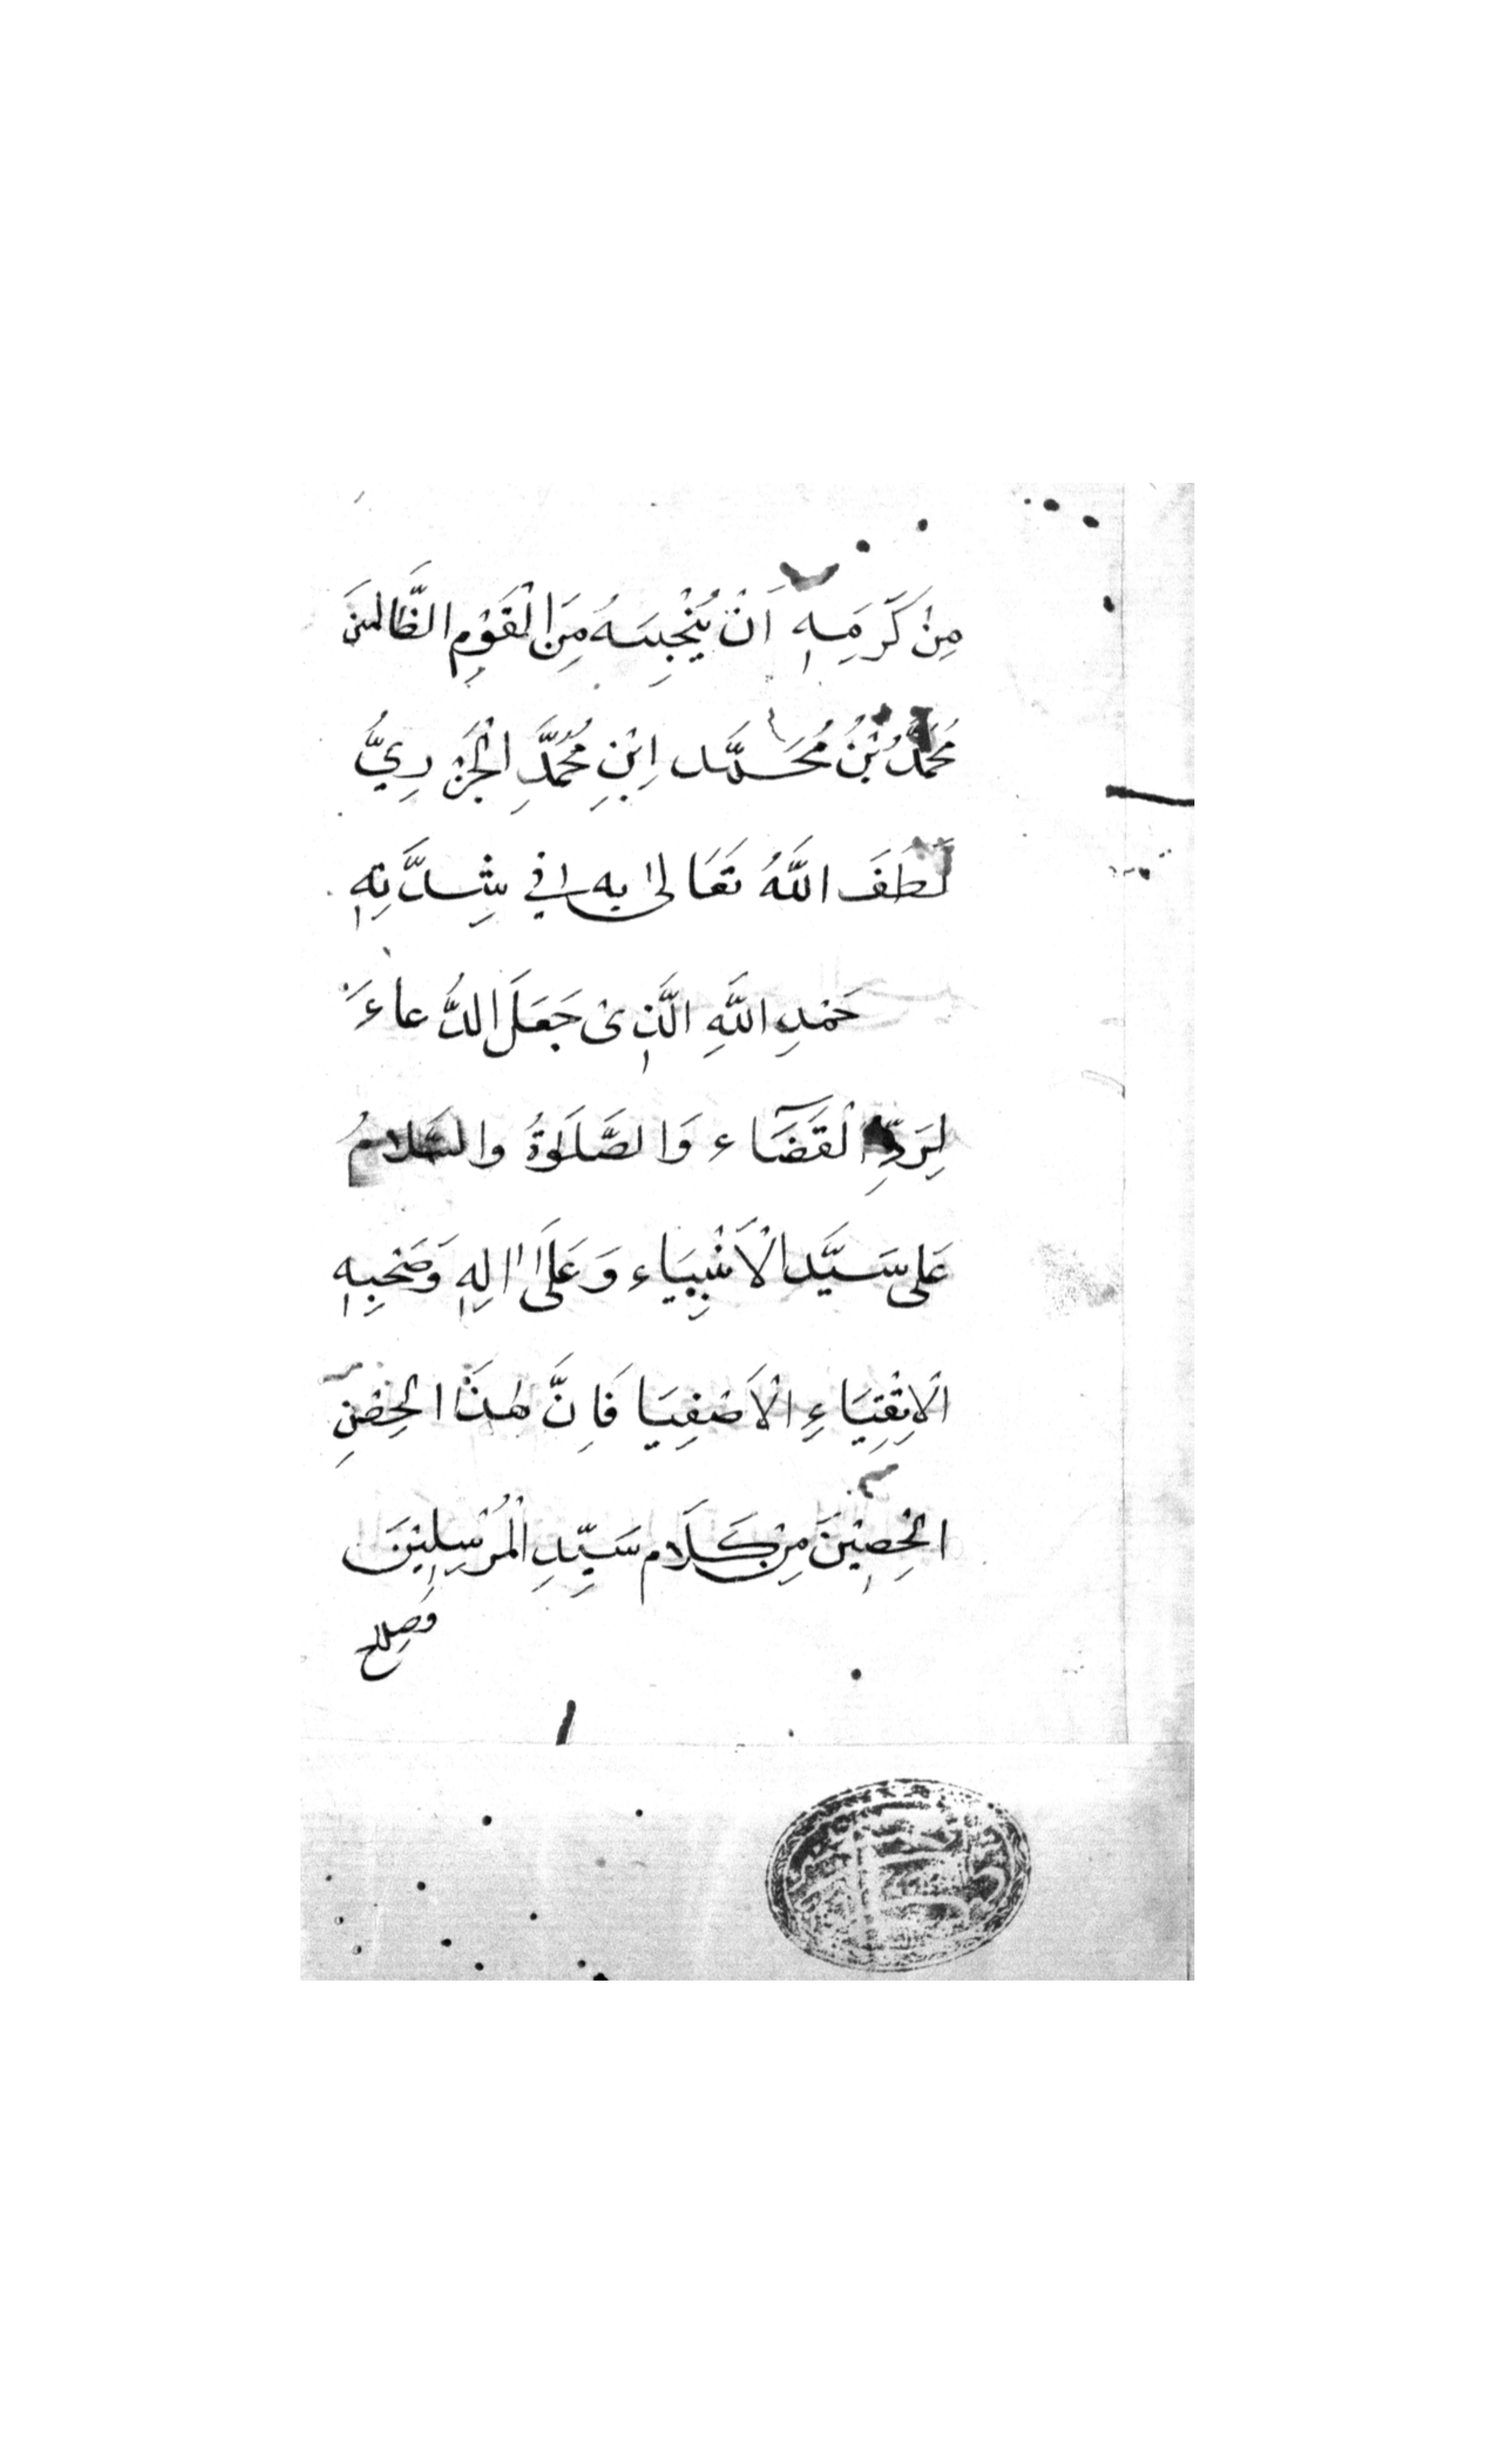 مِنْ كَرَمِهٖ اَنْ يُنْجِيَهُ مِنَ الْقَوْمِ الظَّالمينَ
مُحَمَّدُ بْنُ مُحَمَّد اِبْنِ مُحَمَّدِ الْجَزْرِيُّ
لَطَفَ اللَّهُ تَعَالىٰ بِهٖ فِي شِدَّتِهٖ
حَمْدِ اللَّهِ الَّذِىْ جَعَلَ الدُّعاءَ
لِرَدِّ الْقَضَآء وَالصَّلَوٰةُ والسَّلامُ
عَلى سَيَّد الْاَنْبِيَاء وَعَلَى اٰلِهٖ وَصَحْبِهٖ
الْاِتْقِيَاءِ الْاَصْفِيَا فَاِنَّ هٰذَا الحِصْنِ
الْحِصِيْنَ مِنْ كَلَام سَيِّدِ الْمُرْسِلِيْنَ